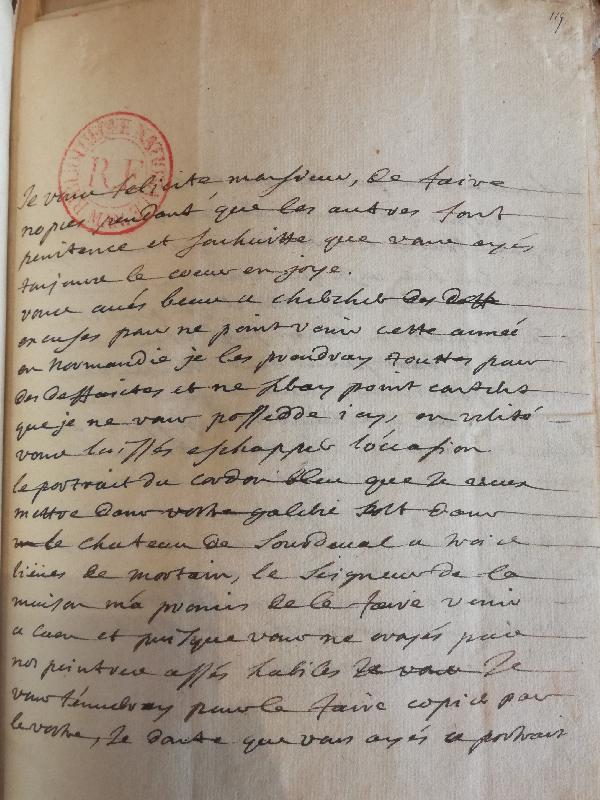 119
BIBLIOTHEQUE NATIONALE
R.F.
Je vous felicite monsieur, de faire
nopces pendant que les autres font
penitence et souhaitte que vous ayés
tousjours le coeur en joye.
vous avés beau a chercher des deff
excuses pour ne point venir cette année
en normandie je les prendray touttes pour
des deffaictes et ne seray point content
que je ne vous possedde icy, en verité
vous laissés eschapper l'occasion
le portrait du cordon bleu que je veux
mettre dans vostre galerie est dans
le chateau de Sourdeval a trois
lieües de mortain, le seigneur de la
maison m'a promis de le faire venir
a caen et puisque vous ne croyés pas
nos peintres assés habiles je vous Je
vous l'envoiray pour le faire copier par
le vostre, Je doute que vous ayés ce portrait